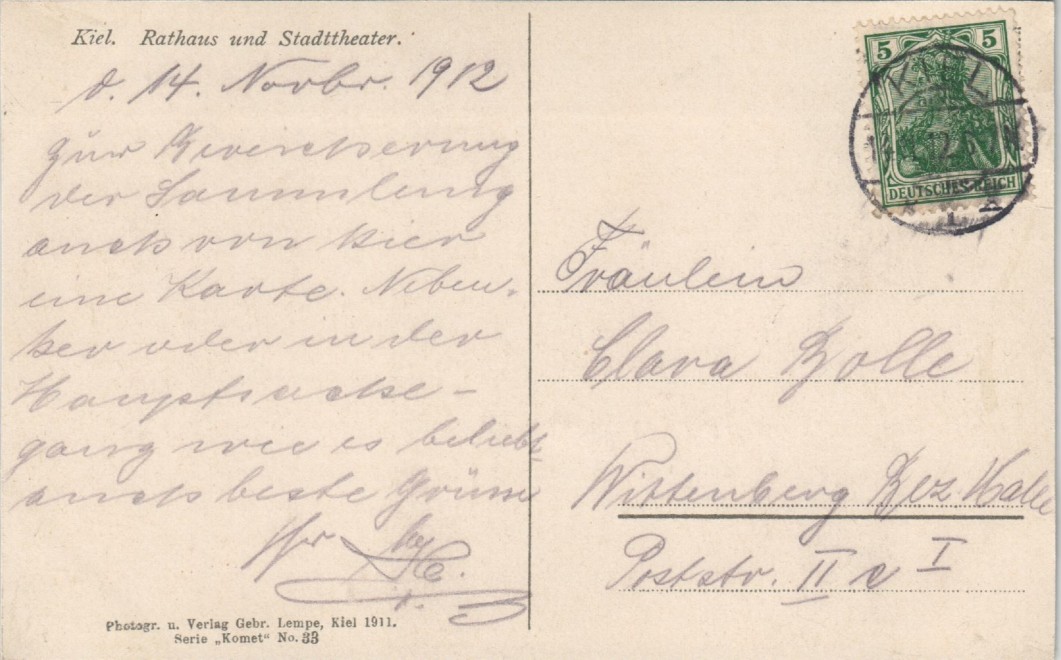 Kiel. Rathaus und Stadttheater.
d. 14. Novbr. 1912
Zur Bereicherung
der Sammlung
auch von hier
eine Karte. Neben-
her oder in der
Hauptsache -
ganz wie es beliebt
auch beste Grüsse
Ihr
Photogr. u. Verlag Gebr. Lempe, Kiel 1911.
Serie „Komet“ No. 33
5 5
DEUTSCHES REICH
KIEL
Fräulein
Clara Zolle
Wittenberg Bez. Halle
Poststr. II
I